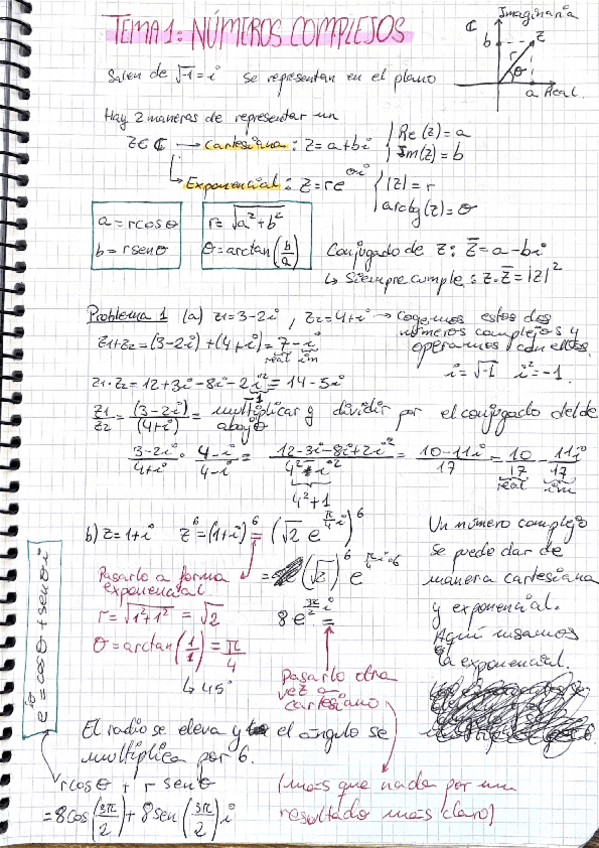 TEMA 1: NÚMEROS COMPLEJOS
Imaginaria
ℂ
b
z
r
θ
a Real
Salen de √-1 = i se representan en el plano
Hay 2 maneras de representar un
z ∈ ℂ → Cartesiana: z = a + bi { Re(z) = a
Im(z) = b
Exponencial: z = re^θi { |z| = r
arctg(z) = θ
a = r cos θ
b = r sen θ
r = √a² + b²
θ = arctan(b/a)
Conjugado de z: z̄ = a - bi
↳ Siempre cumple: z · z̄ = |z|²
Problema 1 (a) z1 = 3 - 2i, z2 = 4 + i → Cogemos estos dos
números complejos y
operamos con ellos.
z1 + z2 = (3 - 2i) + (4 + i) = 7 - i
real im
i = √-1 i² = -1.
z1 · z2 = 12 + 3i - 8i - 2i² = 14 - 5i
-1
z1/z2 = (3 - 2i)/(4 + i) = multiplicar y dividir por el conjugado del de
abajo
3 - 2i/4 + i · 4 - i/4 - i = 12 - 3i - 8i + 2i²/4² - i² = 10 - 11i/17 = 10/17 - 11i/17
real im
4² + 1
b) z = 1 + i z⁶ = (1 + i)⁶ = (√2 e^π/4 i)⁶
= (√2)⁶ e^π/4 i·6
Pasarlo a forma
exponencial
r = √1² + 1² = √2
8 e^3π/2 i =
θ = arctan(1/1) = π/4
↳ 45°
Pasarlo otra
vez a
cartesiano
Un número complejo
se puede dar de
manera cartesiana
y exponencial.
Aquí usamos
la exponencial.
e^iθ = cos θ + sen θ i
El radio se eleva y el ángulo se
multiplica por 6.
r cos θ + r sen θ
= 8 cos(3π/2) + 8 sen(3π/2) i
(más que nada por un
resultado más claro)